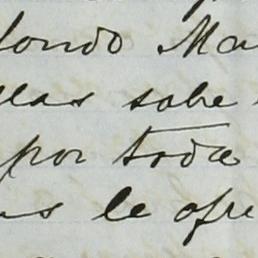 fondo Ma
llas sobre
por toda
us le ofre